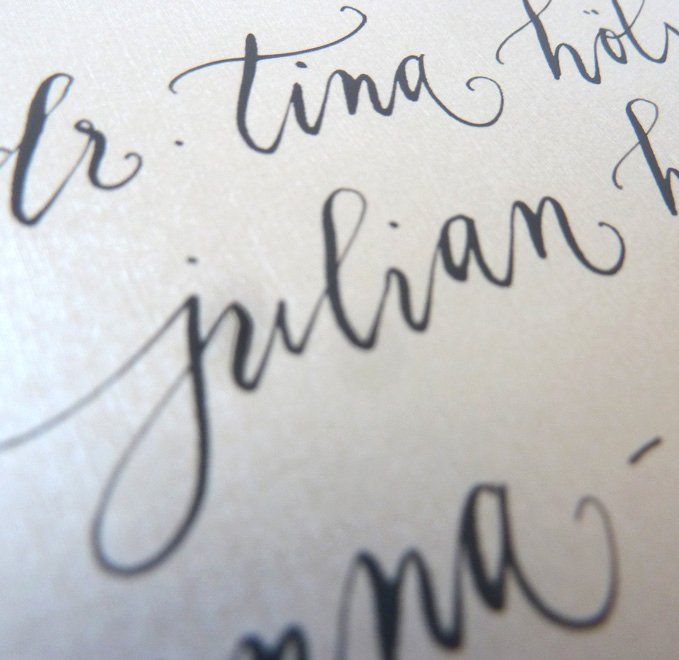 dr. tina höl
julian h
nna -